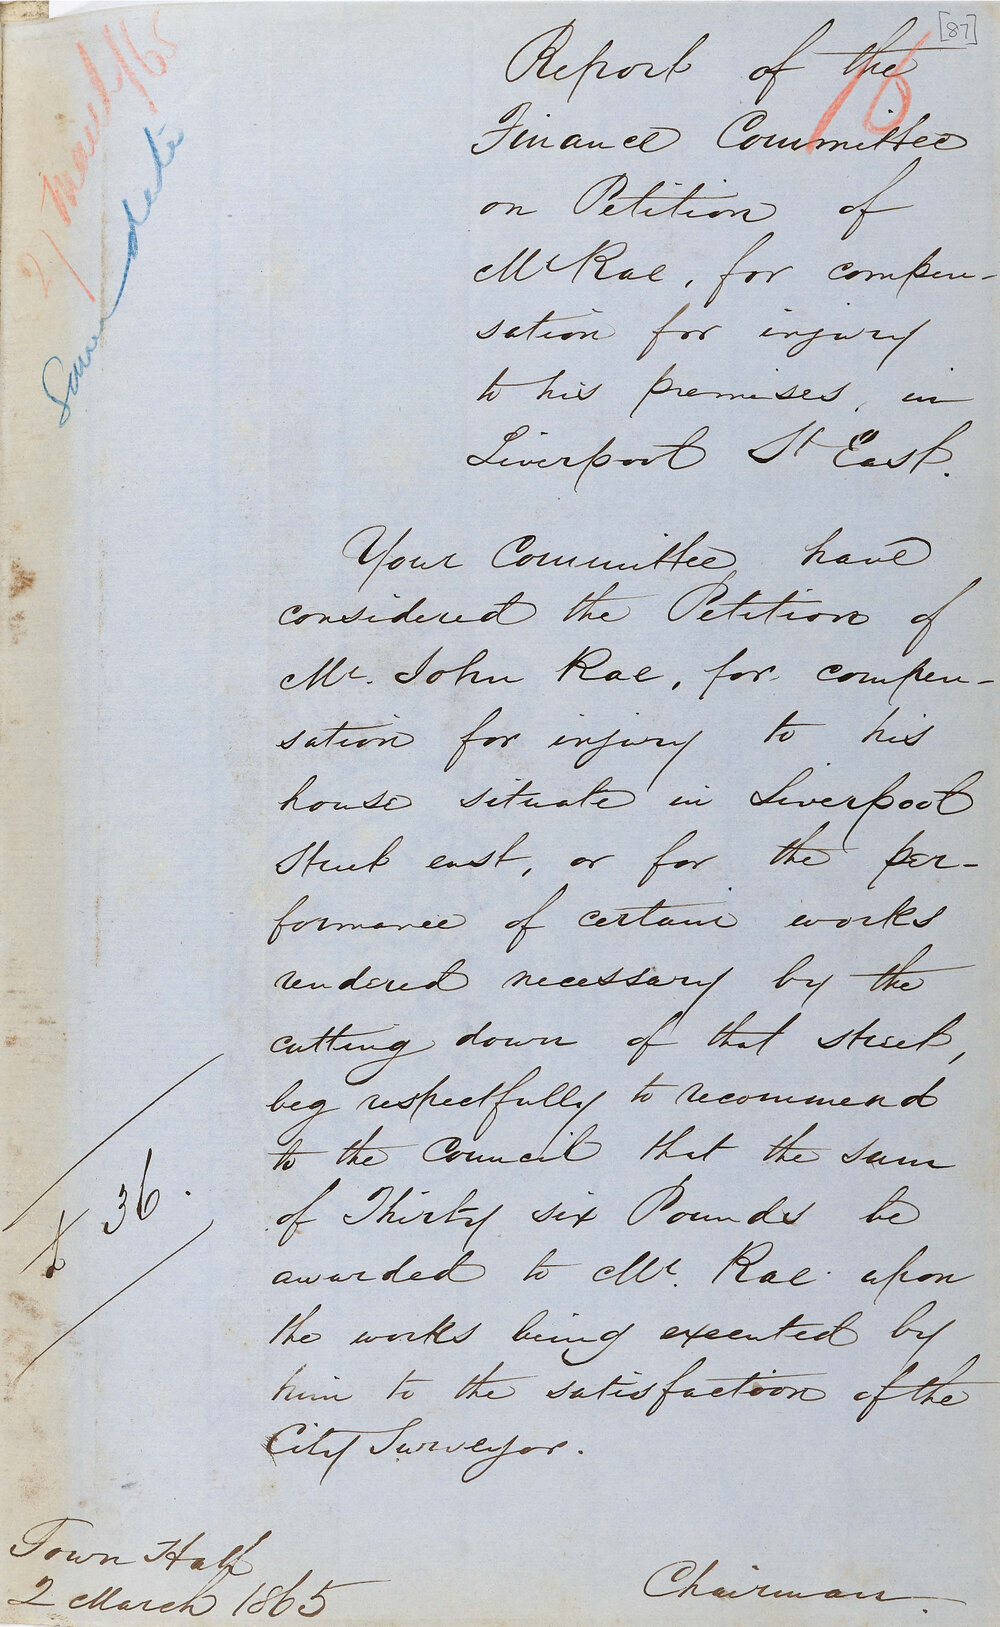 [87]
16
2/ March/65
Same date
Report of the
Finance Committee
on Petition of
Mr Rae, for compen-
sation for injury
to his premises, in
Liverpool St East.
Your Committee have
considered the Petition of
Mr. John Rae, for compen-
sation for injury to his
house situate in Liverpool
Street east, or for the per-
formance of certain works
rendered necessary by the
cutting down of that street,
beg respectfully to recommend
to the Council that the sum
of Thirty six Pounds be
awarded to Mr. Rae upon
the works being executed by
him to the satisfaction of the
City Surveyor.
£ 36.
Town Hall
2 March 1865
Chairman.